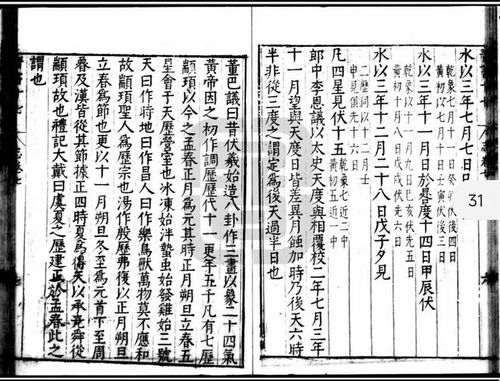 水以三年七月七日
乾象七月十一日癸卯伏後四日
黃初以七月十日壬寅伏後三日
水以三年十一月日於晷度十四日甲辰伏
乾象以十一月九日己亥伏先五日
黃初十月八日戊戌伏先六日
水以三年十二月二十八日戊子夕見
二曆同以十二月壬
申見俱先十六日
凡四星見伏十五乾象七近二中
黃初五近一中
郎中李恩議以太史天度與相覆校二年七月三年
十一月望與天度日皆差異月蝕加時乃後天六時
半非從三度之謂定為後天過半日也
31
董巴議曰昔伏羲始造八卦作三畫以象二十四氣
黃帝因之初作調歷歷代十一更年五千凡有七歷
顓頊以今之孟春正月為元其時正月朔旦立春五
星會于天歷營室也冰凍始泮蟄蟲始發雞始三號
天曰作時地曰作昌人曰作樂鳥獸萬物莫不應和
故顓頊聖人為歷宗也湯作殷歷弗復以正月朔旦
立春為節也更以十一月朔旦冬至為元首下至周
魯及漢皆從其節據正四時夏為得天以承堯舜從
顓頊故也禮記大戴曰虞夏之歷建正於孟春此之
謂也